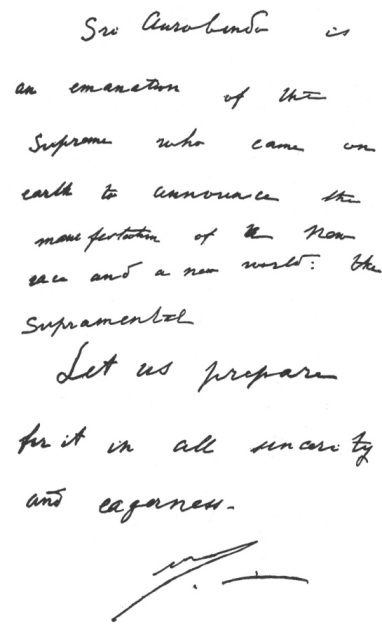 Sri Aurobindo is
an emanation of the
Supreme who came on
earth to announce the
manifestation of a new
race and a new world: the
Supramental
Let us prepare
for it in all sincerity
and eagerness.